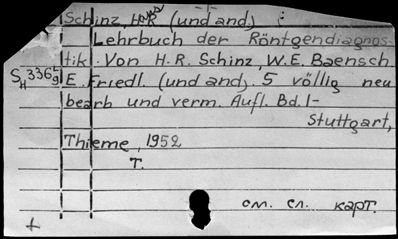 Schinz, H.R. (und and.)
Lehrbuch der Röntgendiagnos-
tik. Von H.R. Schinz, W.E. Baensch.
E. Friedl. (und and). 5 völlig neu
bearb und verm. Aufl. Bd. I-
Stuttgart,
Thieme, 1952
T.
см. сл. карт.